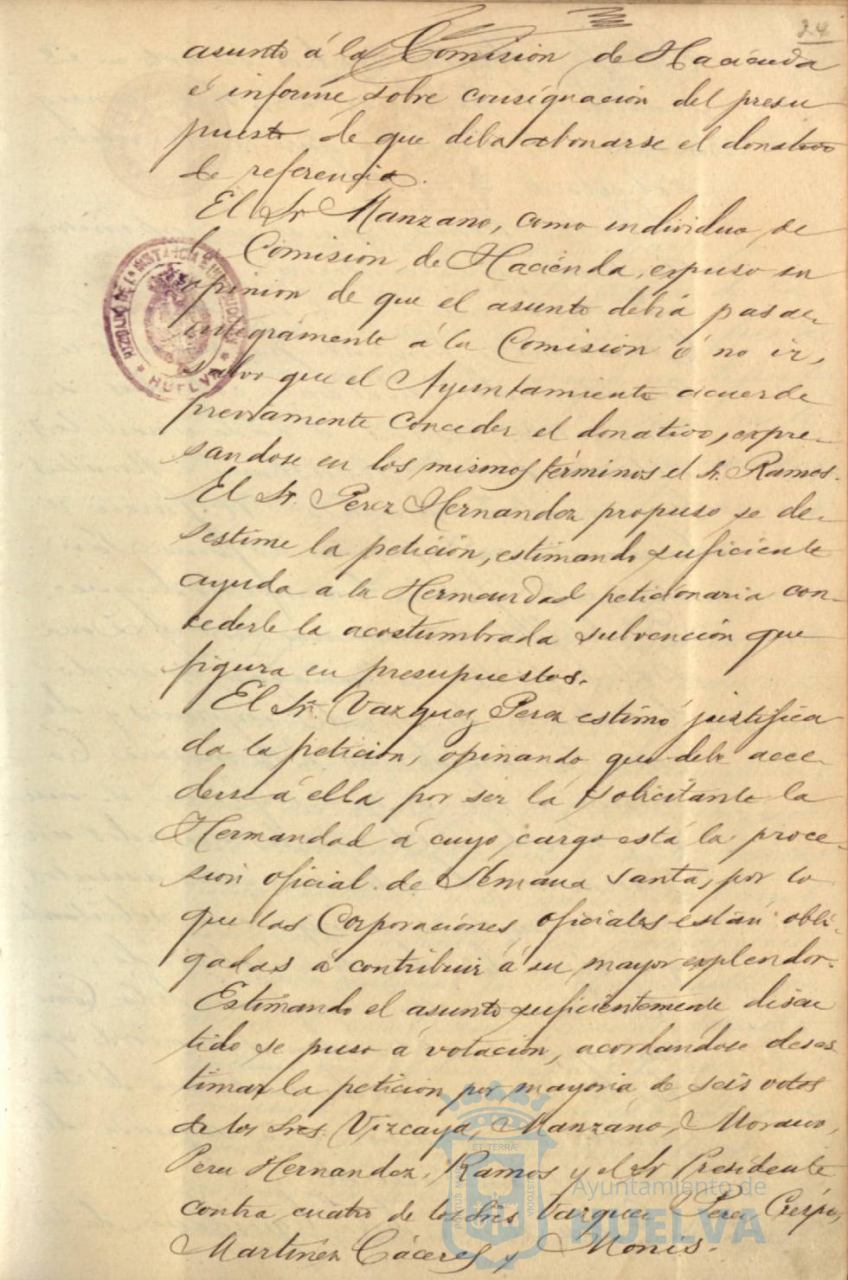 24
asunto á la Comisión de Hacienda
é informe sobre consignación del presu
puesto de que deba abonarse el donativo
de referencia.
El Sr Manzano, como individuo de
la Comisión de Hacienda, expuso su
opinion de que el asunto debía pasar
integramente á la Comisión ó no ir,
salvo que el Ayuntamiento acuerde
previamente conceder el donativo, expre-
sandose en los mismos términos el Sr. Ramos.
El Sr. Perez Hernandez propuso se de-
sestime la petición, estimando suficiente
ayuda a la Hermandad peticionaria con-
cederle la acostumbrada subvención que
figura en presupuestos.
El Sr. Vazquez Perez estimó justifica
da la petición, opinando que debe acce-
derse á ella por ser la solicitante la
Hermandad á cuyo cargo está la proce-
sion oficial de Semana Santa, por lo
que las Corporaciones oficiales están obli-
gadas á contribuir á su mayor explendor.
Estimando el asunto suficientemente discu
tido se puso á votación, acordándose deses
timar la petición por mayoria de seis votos
de los Sres. Vizcaya, Manzano, Moreno,
Perez Hernandez, Ramos y el Sr Presidente
contra cuatro de los Sres Vazquez Perez, Crespo,
Martinez Cáceres y Monis.
JUZGADO DE 1ª INSTANCIA É INSTRUCCION
* HUELVA *
ET TERRÆ
Ayuntamiento de
HUELVA